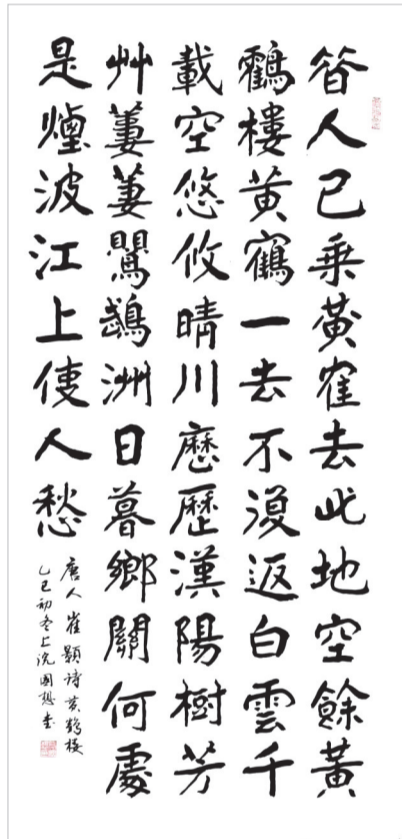 昔人已乘黄寉去此地空餘黄
鸖樓黄鶴一去不復返白雲千
載空悠攸晴川歷歷漢陽樹芳
艸萋萋鸚鵡洲日暮鄉關何處
是煙波江上使人愁
唐人崔顥诗黄鹤楼
乙巳初冬上浣國书